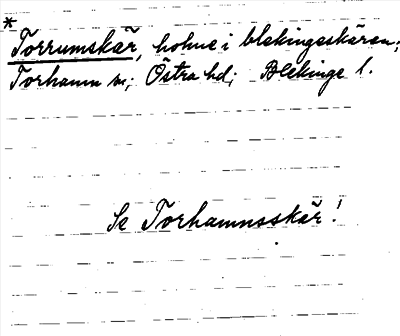 *
Torrumskär, holme i blekingeskären;
Torhamn sn; Östra hd; Blekinge l.
Se Torhamnsskär!